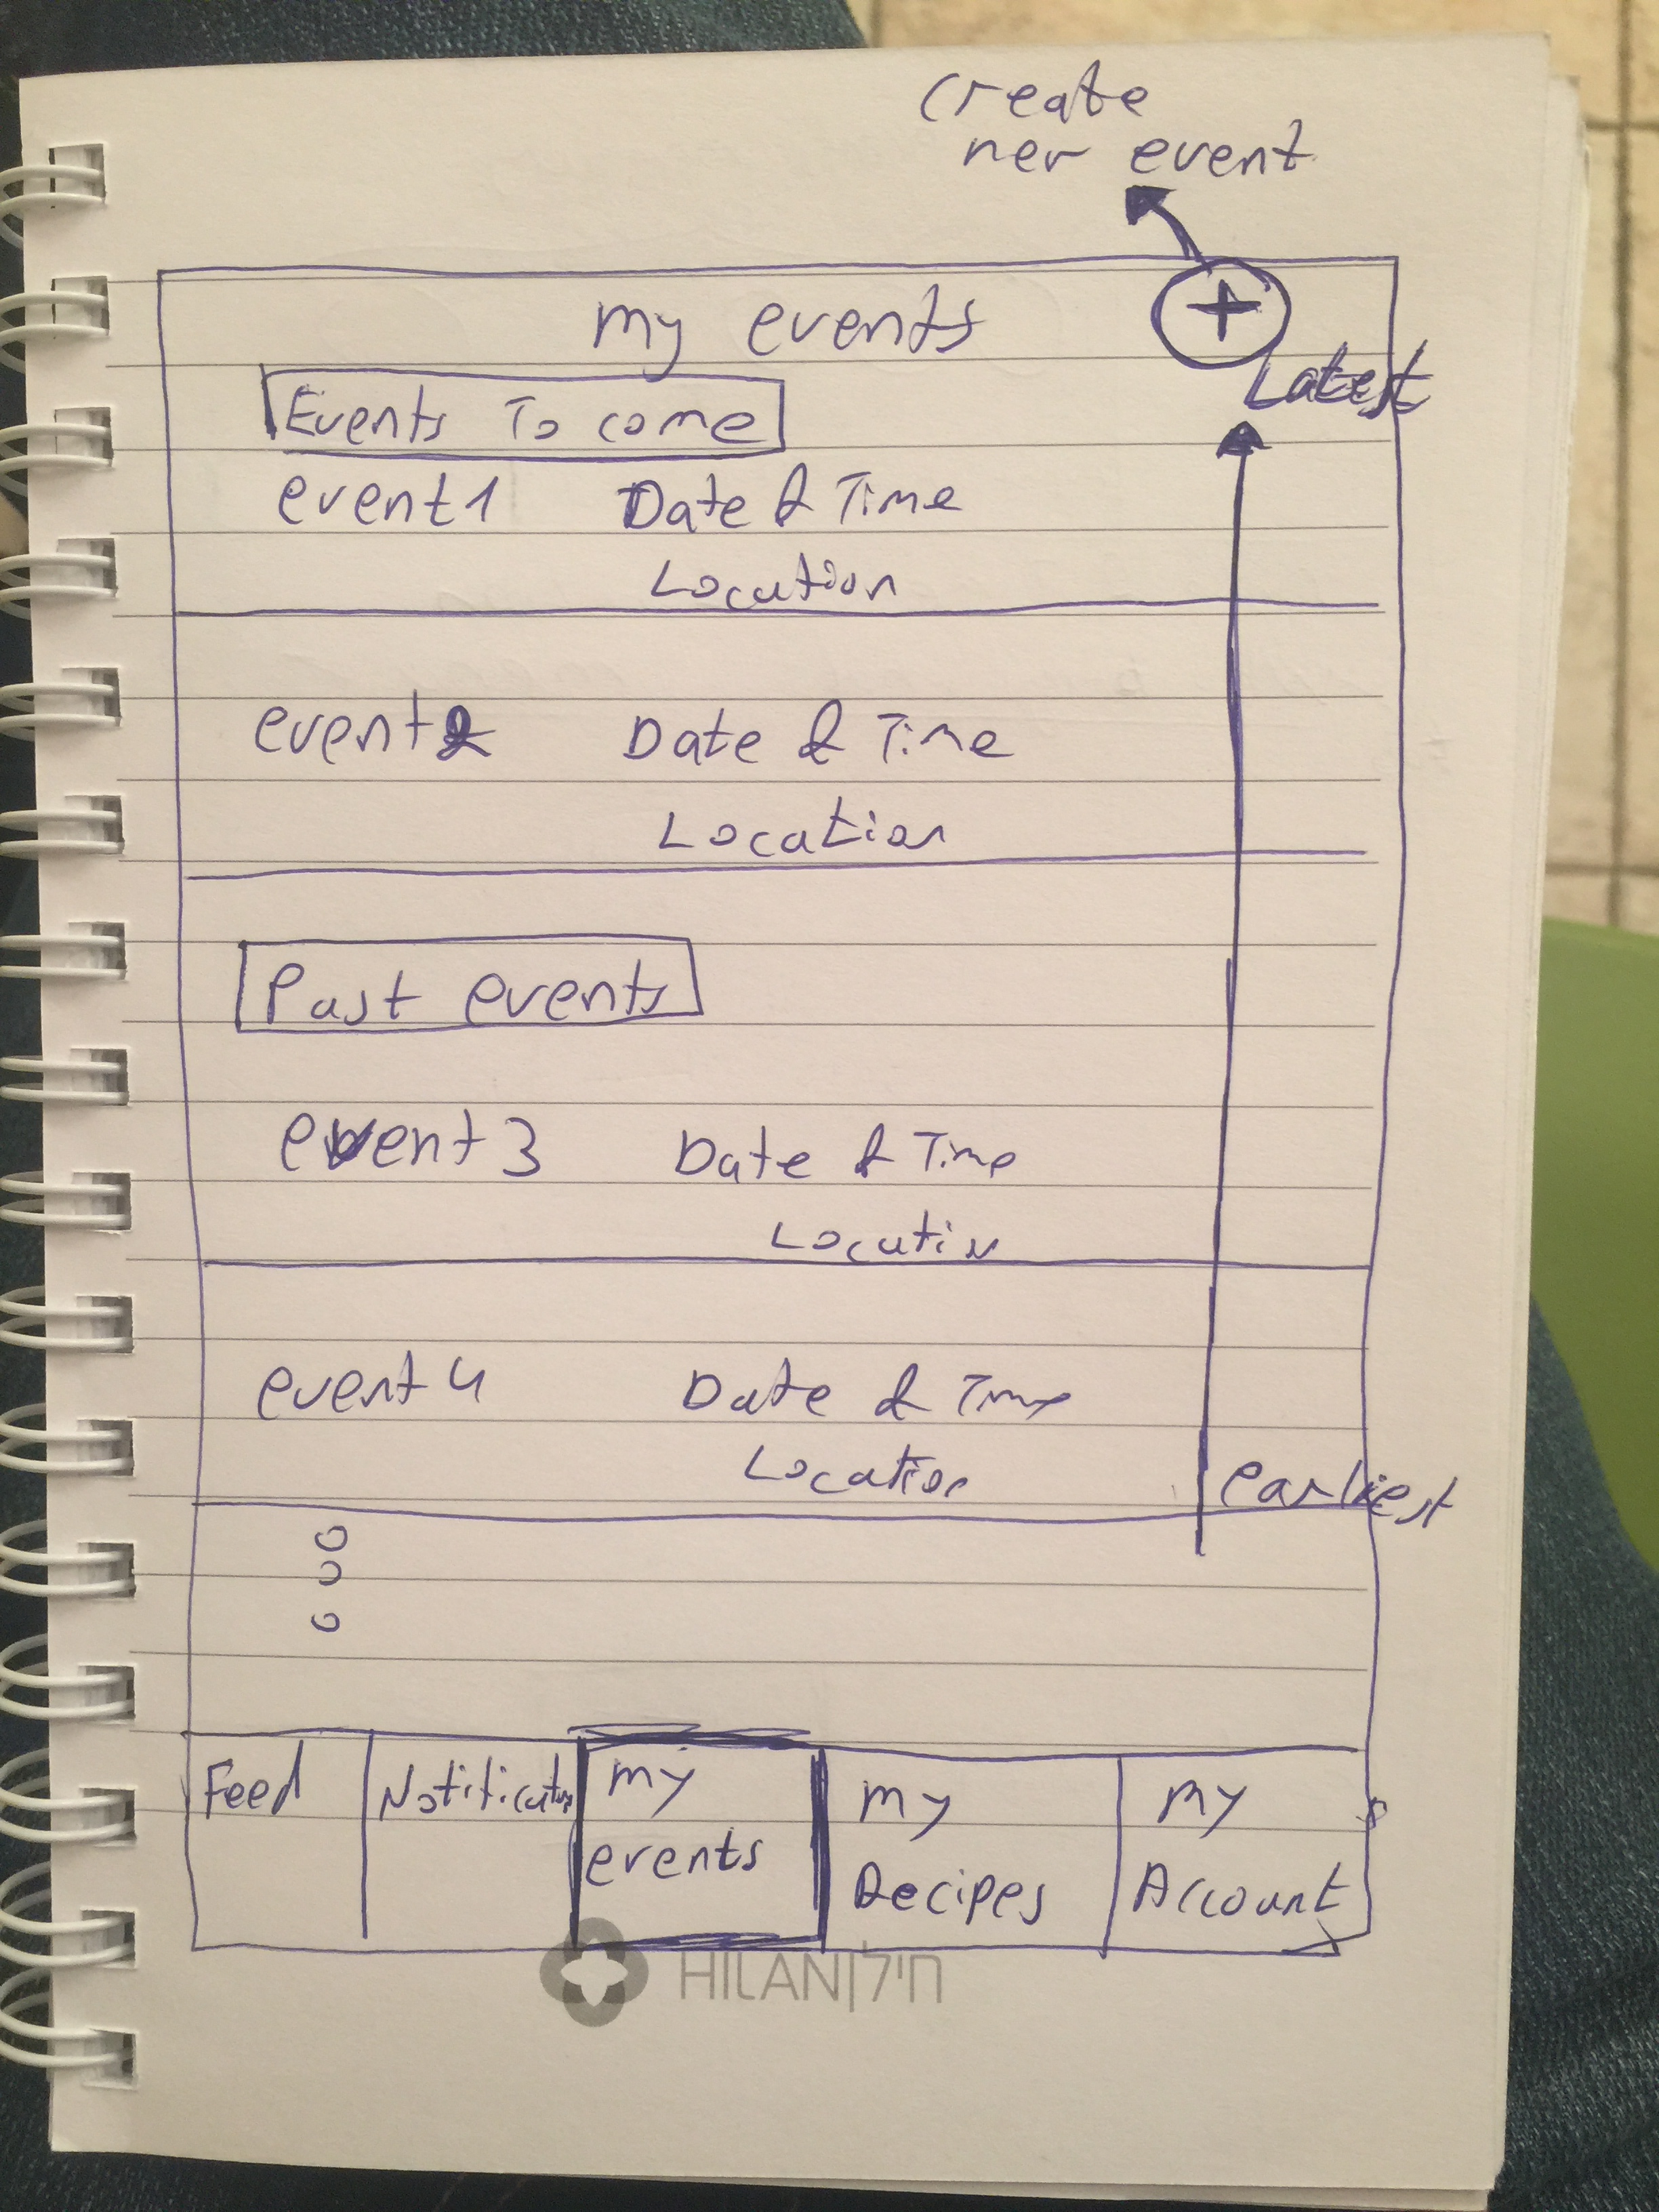 create
new event
my events
+
Latest
Events To come
event 1 Date & Time
Location
event 2 Date & Time
Location
Past events
event 3 Date & Time
Locatin
event 4 Date & Time
Location
earliest
Feed
Notification
my
events
my
Recipes
my
Account
HILAN|חילן